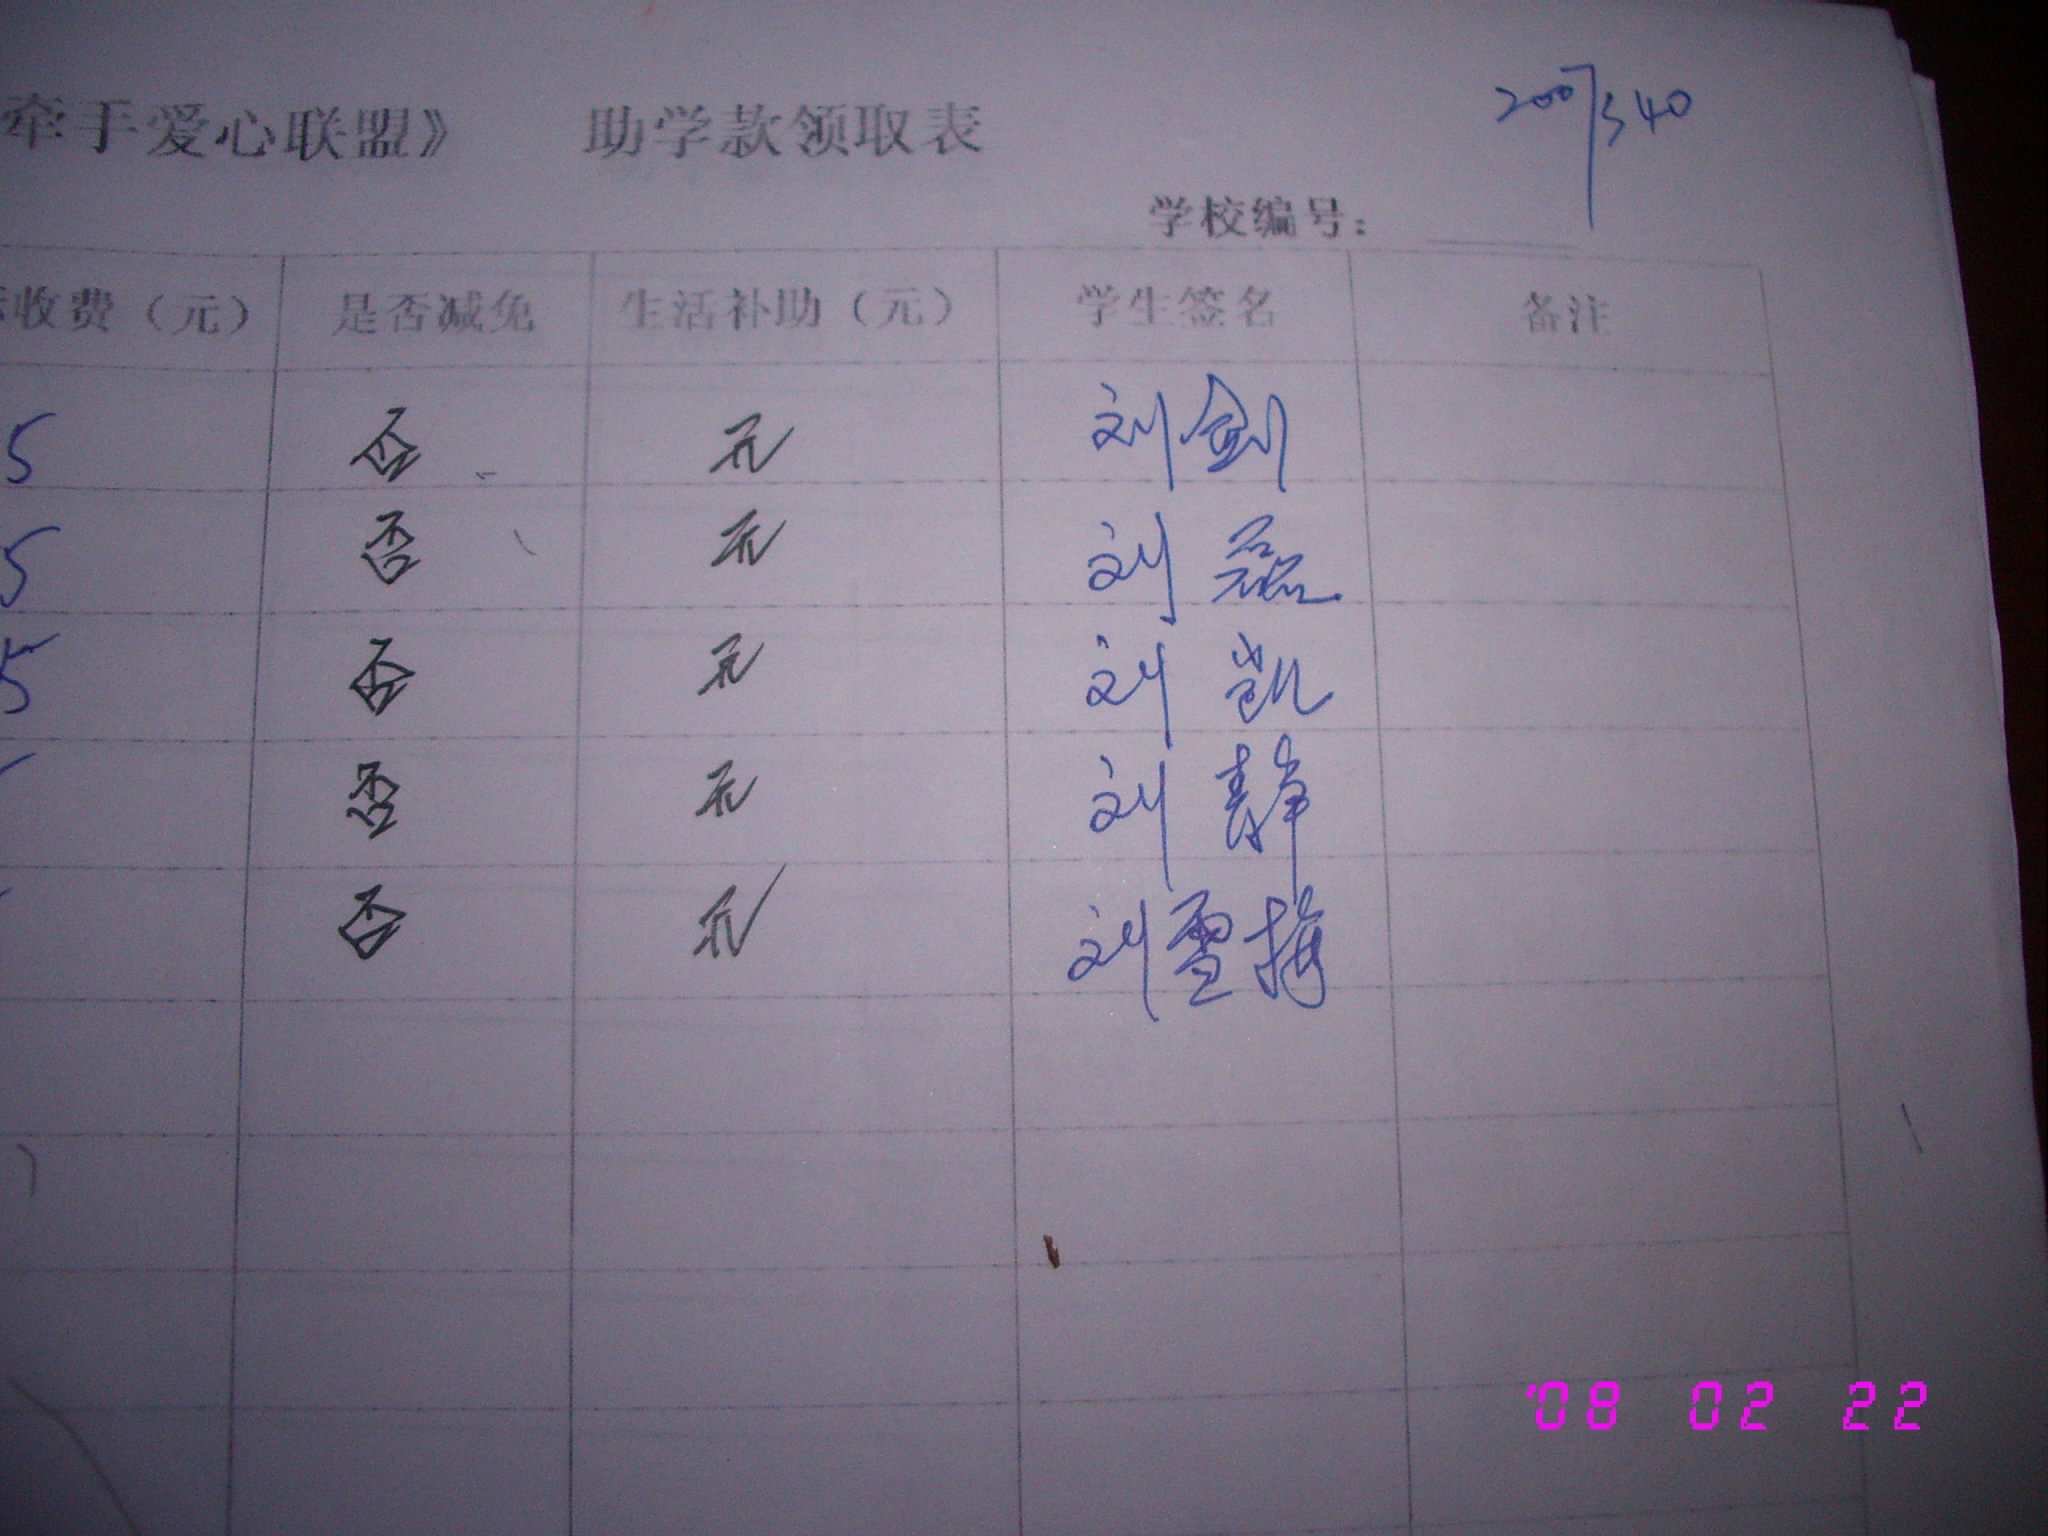 牵手爱心联盟》 助学款领取表
2007340
学校编号：
收费（元） 是否减免 生活补助（元） 学生签名 备注
5 否 无 刘剑
5 否 无 刘磊
5 否 无 刘凯
否 无 刘静
否 无 刘雪梅
'08 02 22